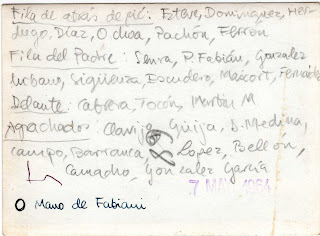 Fila de atrás de pié: Esteve, Dominguez, Mer-
dugo, Díaz, Ochoa, Pachón, Ferrón
Fila del Padre: Senra, P. Fabián, Gonzalez
Urbano, Sigüenza, Escudero, Maicort, Fernández
Delante: Cabrera, Tocón, Martos M
Agachados: Clavijo, Güija, D. Medina,
Campo, Barranca, Lopez, Bellón,
Camacho, Gonzalez García
7 MAY 1984
O Mano de Fabiani